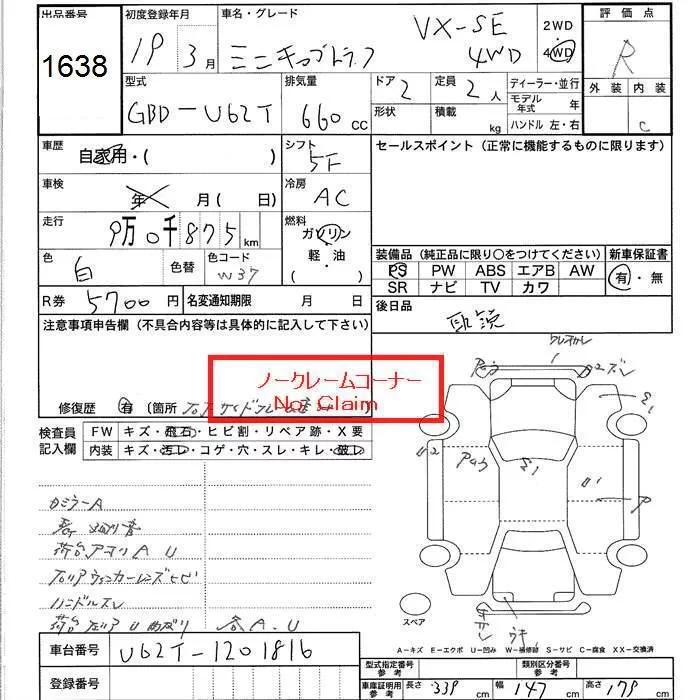 出品番号 初度登録年月 車名・グレード 評価点
1638 19 3月 ミニキャブトラック VX-SE 4WD 2WD 4WD R
型式 排気量 ドア 定員 ディーラー・並行 外装 内装
GBD-U62T 660cc 2 2人 モデル年式 年 C
形状 積載 kg ハンドル 左・右
車歴 自家用・( ) シフト 5F セールスポイント (正常に機能するものに限ります)
車検 年 月 ( 日) 冷房 AC
走行 9万0千875km 燃料 ガソリン 軽油 ・( )
色 白 色替 色コード W37
装備品 (純正品に限り○をつけてください) 新車保証書
PS PW ABS エアB AW 有・無
SR ナビ TV カワ
R券 5700円 名変通知期限 月 日 後日品
取説
注意事項申告欄 (不具合内容等は具体的に記入して下さい)
ノークレームコーナー
No Claim
修復歴 有 (箇所
検査員記入欄 FW キズ・飛石・ヒビ割・リペア跡・X要
内装 キズ・汚レ・コゲ・穴・スレ・キレ・破レ
カミラーA
荷台アオリA U
ハンドルスレ
各A.U
スペア
A-キズ E-エクボ U-凹み W-補修跡 S-サビ C-腐食 XX-交換済
車台番号 U62T-1201816
型式指定番号 参考 類別区分番号 参考
登録番号 車庫証明用 参考 長さ 339cm 幅 147cm 高さ 179cm